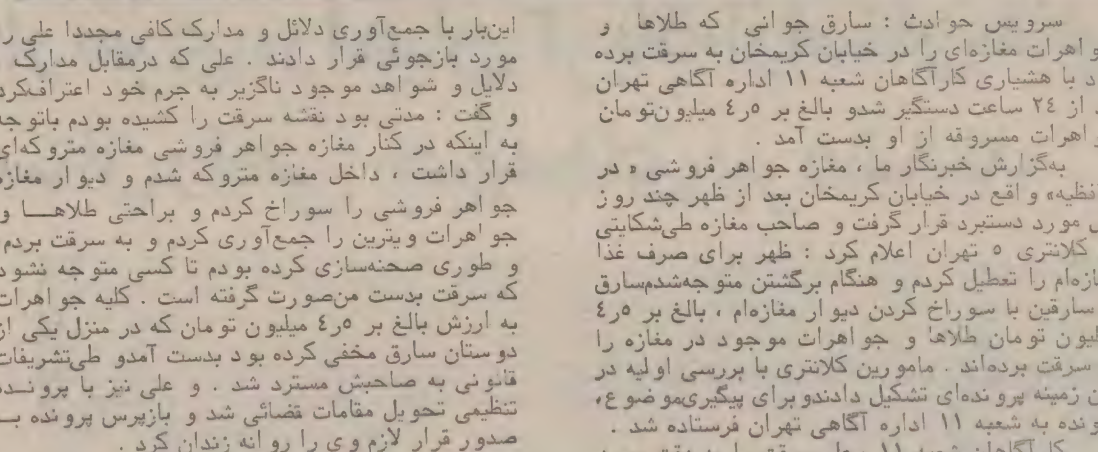 سرویس حوادث : سارق جوانی که طلاها و
اهرات مغازه‌ای را در خیابان کریمخان به سرقت برده
با هشیاری کارآگاهان شعبه ۱۱ اداره آگاهی تهران
از ۲٤ ساعت دستگیر شدو بالغ بر ٤ر٥ میلیون‌تومان
اهرات مسروقه از او بدست آمد .
به‌گزارش خبرنگار ما ، مغازه جواهر فروشی « در
واقع در خیابان کریمخان بعد از ظهر چند روز
مورد دستبرد قرار گرفت و صاحب مغازه طی‌شکایتی
کلانتری ٥ تهران اعلام کرد : ظهر برای صرف غذا
را تعطیل کردم و هنگام برگشتن متوجه‌شدم‌سارق
سارقین با سوراخ کردن دیوار مغازه‌ام ، بالغ بر ٤ر٥
تومان طلاها و جواهرات موجود در مغازه را
سرقت برده‌اند . مامورین کلانتری با بررسی اولیه در
زمینه پرونده‌ای تشکیل دادندو برای پیگیری‌موضوع،
به شعبه ۱۱ اداره آگاهی تهران فرستاده شد .
کارآگاهان شعبه ۱۱
این‌بار با جمع‌آوری دلائل و مدارک کافی مجددا علی را
مورد بازجوئی قرار دادند . علی که درمقابل مدارک
دلایل و شواهد موجود ناگزیر به جرم خود اعتراف‌کرد
و گفت : مدتی بود نقشه سرقت را کشیده بودم باتوجه
به اینکه در کنار مغازه جواهر فروشی مغازه متروکه‌ای
قرار داشت ، داخل مغازه متروکه شدم و دیوار مغازه
جواهر فروشی را سوراخ کردم و براحتی طلاهــا و
جواهرات ویترین را جمع‌آوری کردم و به سرقت بردم
و طوری صحنه‌سازی کرده بودم تا کسی متوجه نشود
که سرقت بدست من‌صورت گرفته است . کلیه جواهرات
به ارزش بالغ بر ٤ر٥ میلیون تومان که در منزل یکی از
دوستان سارق مخفی کرده بود بدست آمدو طی‌تشریفات
قانونی به صاحبش مسترد شد . و علی نیز با پرونــده
تنظیمی تحویل مقامات قضائی شد و بازپرس پرونده بــ
صدور قرار لازم وی را روانه زندان کرد .